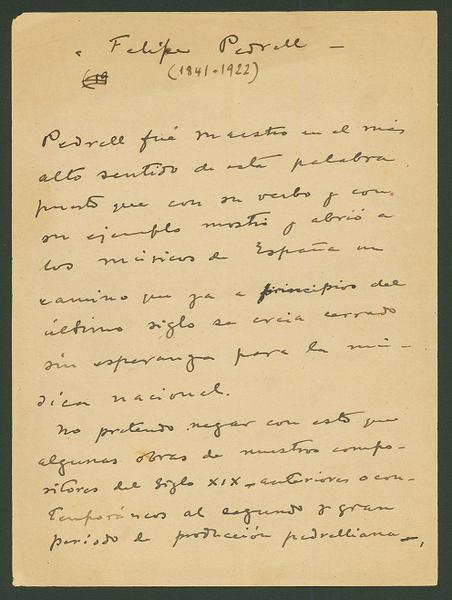 Felipe Pedrell —
(1841-1922)
Pedrell fué maestro en el más
alto sentido de esta palabra
puesto que con su verbo y con
su ejemplo mostró y abrió a
los músicos de España un
camino que ya a principios del
último siglo se creia cerrado
sin esperanza para la mú-
sica nacional.
No pretendo negar con esto que
algunas obras de nuestros compo-
sitores del Siglo XIX, anteriores o con-
temporáneos al segundo y gran
período de producción pedrelliana—,